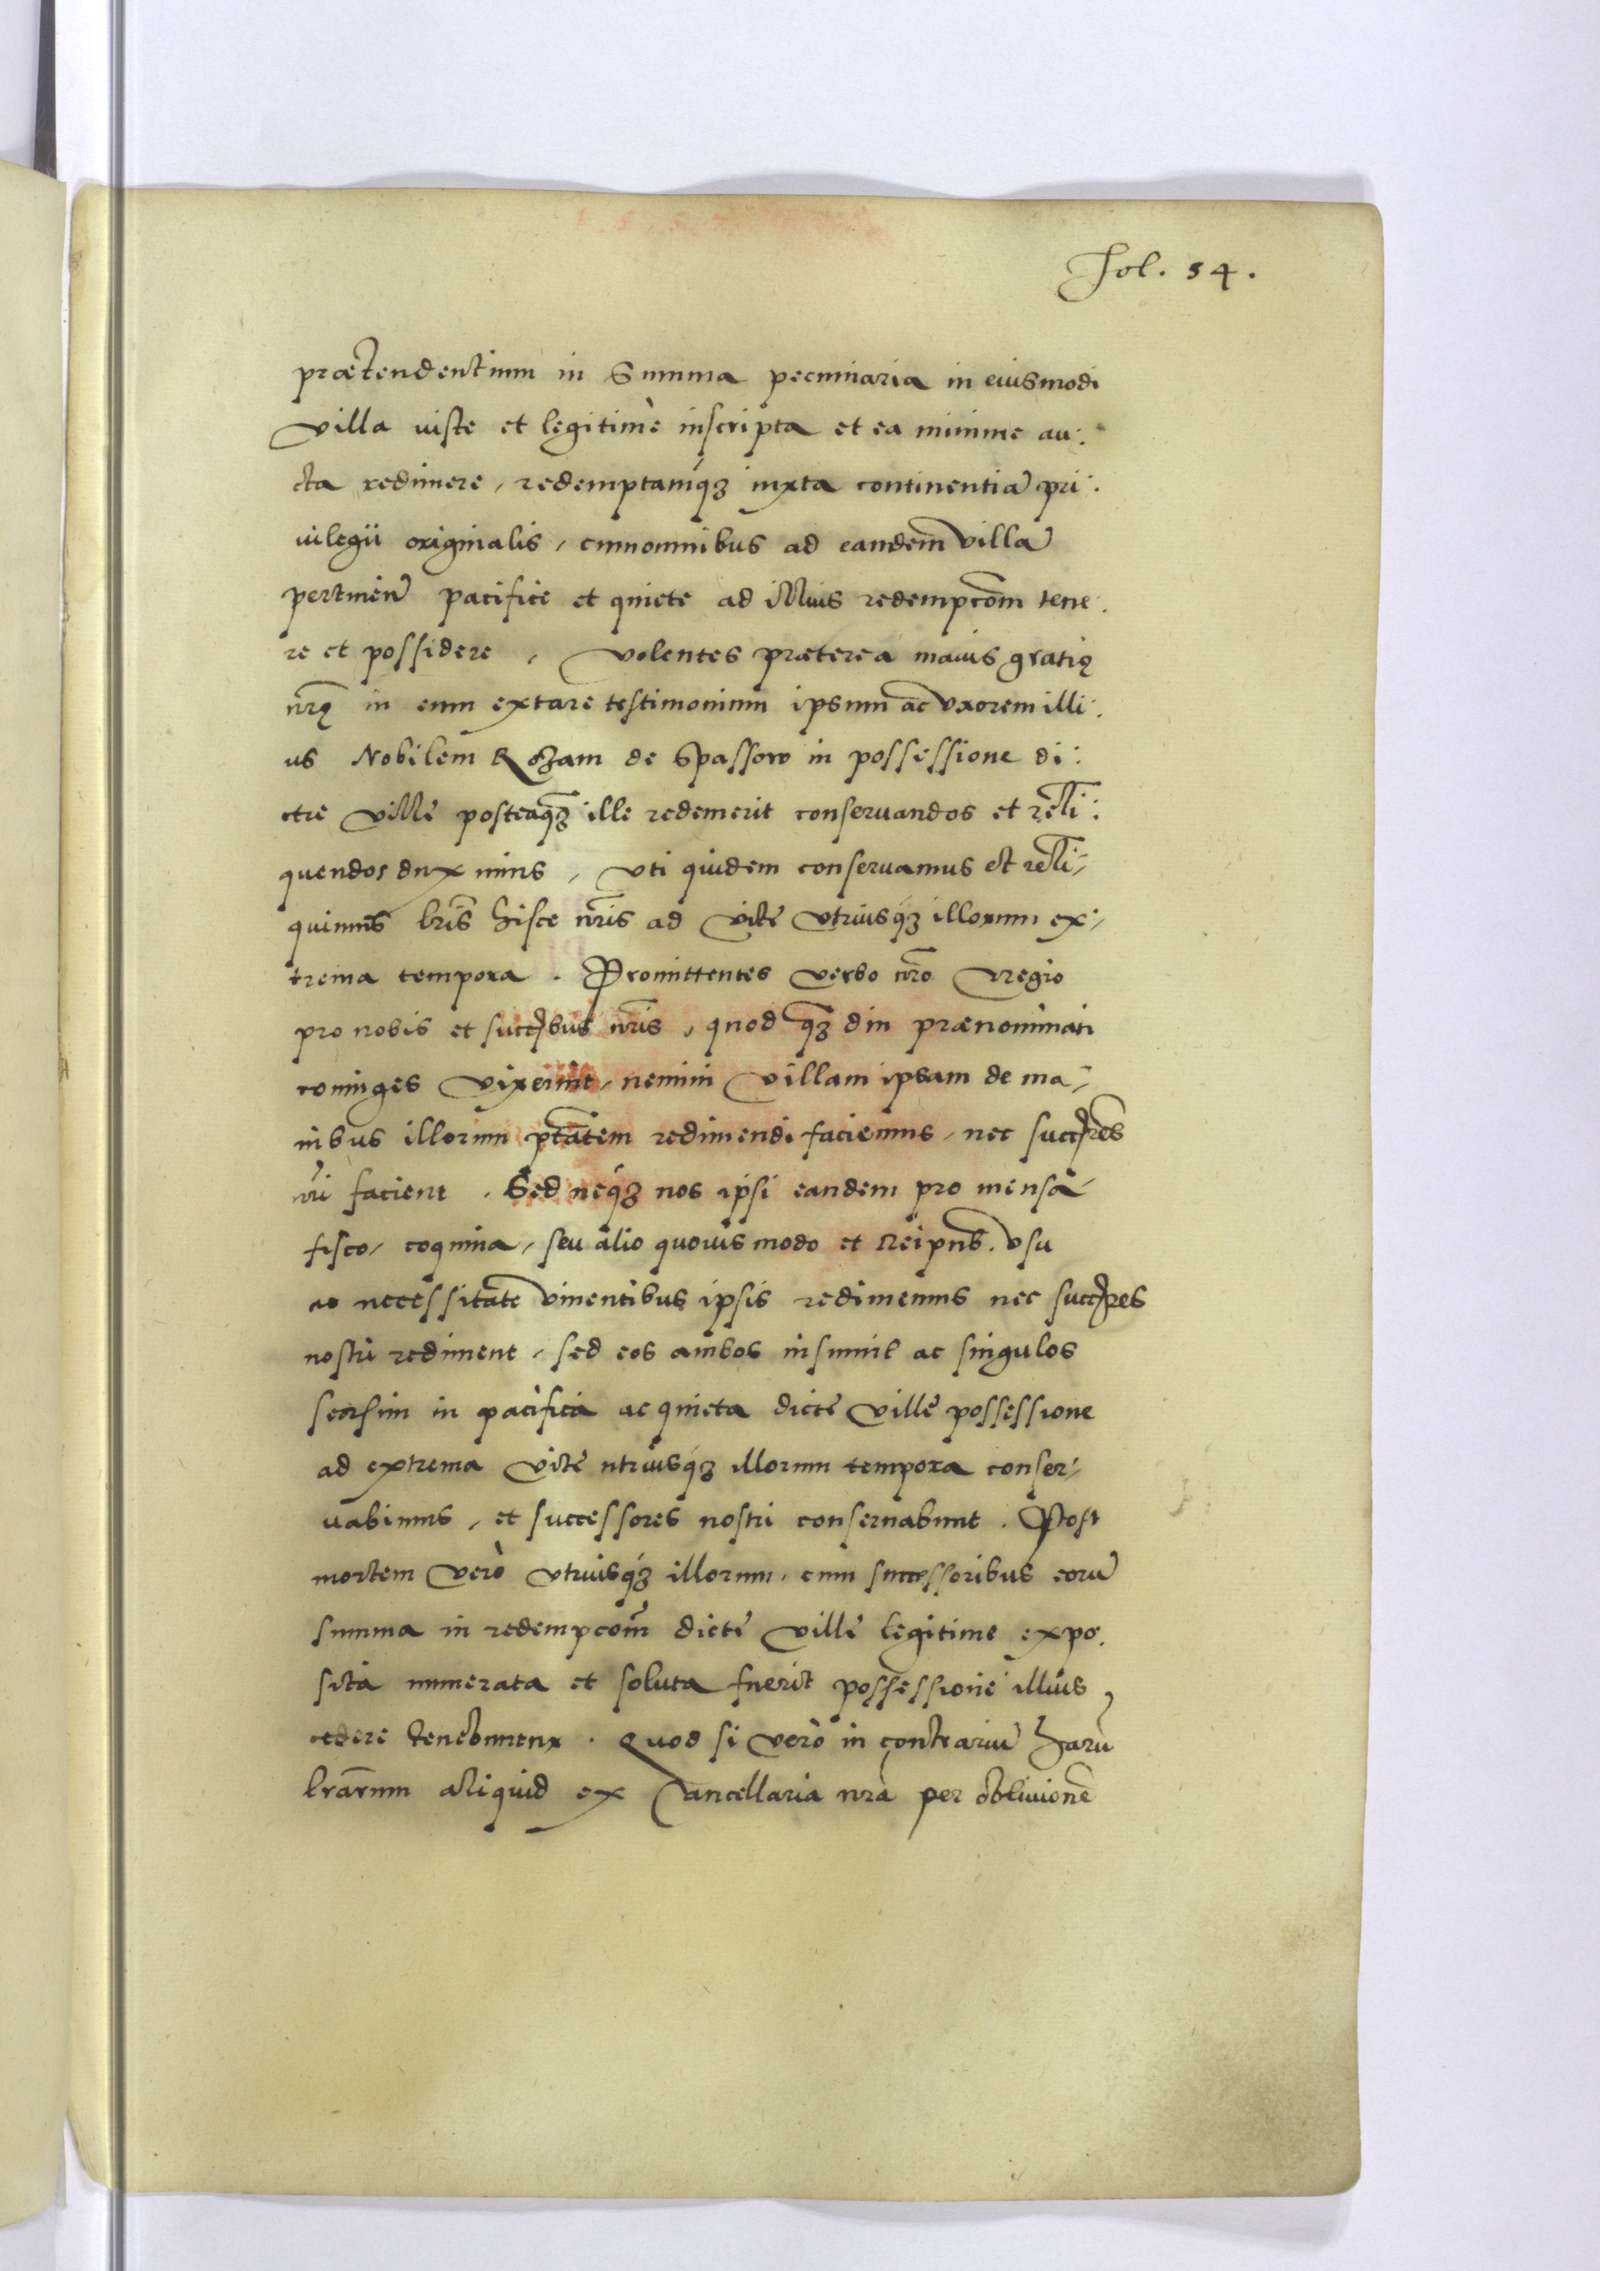 Fol. 54.
prætendentium in Summa pecuniaria in eiusmodi
villa iuste et legitimè inscripta et ea minime au:
cta redimere, redemptamq́ꝫ iuxta continentiā pri:
uilegii originalis, cum omnibus ad eandem̄ villā
pertineñ pacifice et quiete ad illius redempcōm tene:
re et possidere, Volentes præterea maius gratię
nr̄ę in eum extare testimonium ipsum ac vxorem illi:
us Nobilem Rozam de Spassow in possessione di:
cte ville posteaq̄ꝫ ille redemerit conseruandos et reli:
quendos duximus, Vti quidem conseruamus et reli-
quimus lr̄is hisce nr̄is ad vite vtriusq́ꝫ illorum ex-
trema tempora. Promittentes verbo nr̄o Regio
pro nobis et succꝭbus nr̄is, quod q̄ꝫ diu prænominati
coniuges vixerint, nemini villam ipsam de ma-
nibus illorum ptātem redimendi faciemus, nec succꝭres
nr̄i facient. Sed neq́ꝫ nos ipsi eandem pro mensa
fisco, coquina, seu alio quouis modo et Reipub. vsu
ac necessitate viuentibus ipsis redimemus nec succꝭres
nostri rediment, sed eos ambos insimul ac singulos
seorsim in pacifica ac quieta dicte ville possessione
ad extrema vite utriusq́ꝫ illorum tempora conser-
uabimus, et successores nostri conseruabunt. Post
mortem verò vtriusq́ꝫ illorum, cum successoribus eorū
summa in redempcom̄ dicte ville legitime expo:
sita numerata et soluta fuerit possessione illius
cedere tenebuntur. Quod si verò in contrariū harū
lrārum aliquid ex Cancellaria nrā per obliuionē